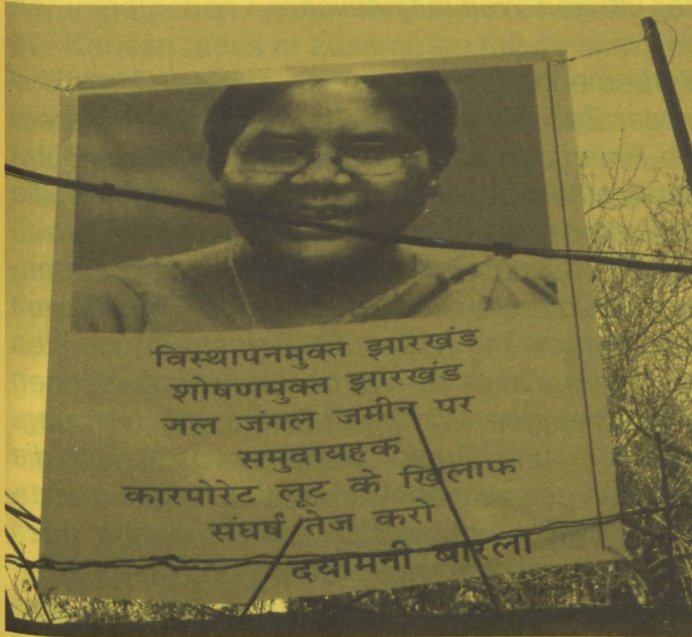 विस्थापनमुक्त झारखंड
शोषणमुक्त झारखंड
जल जंगल जमीन पर
समुदायहक
कारपोरेट लूट के खिलाफ
संघर्ष तेज करो
दयामनी बारला